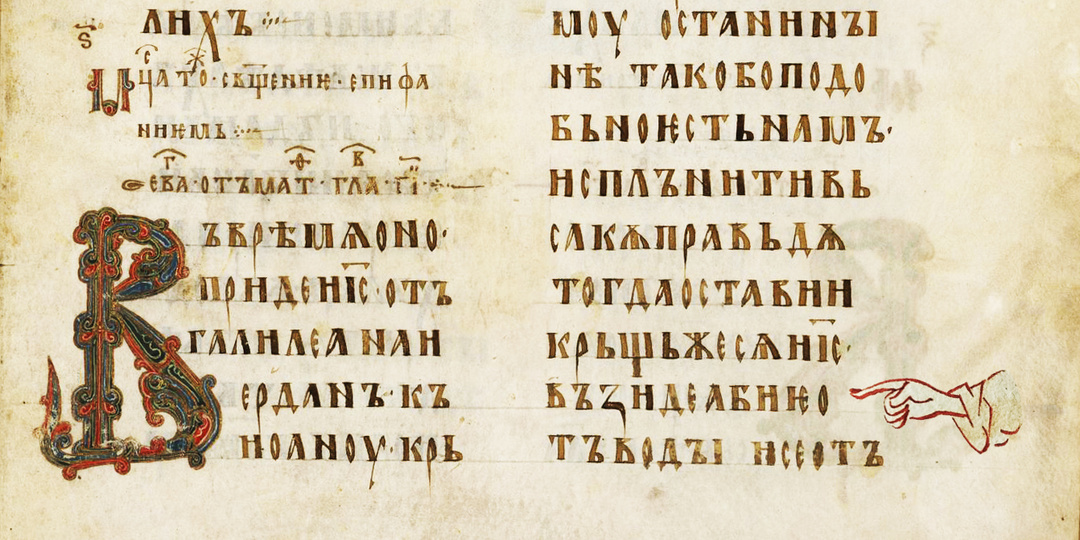 лихъ
ѕ
мⷭ҇ца тогⷤ · сщ҃ении · епифа
ниемь
еваⷢ · отъ маⷴ · глаⷡ · г҃і ·
Въ врѣмѧ оно ·
приде и҃с · отъ
галилеꙗ на и
ердаинъ · къ
иоаноу · крь
моу остани нꙑ
нѣ тако бо подо
бьно ѥсть намъ ·
испълнити вь
сакѫ правьдѫ
тогда остави и
крьщь же сѧ и҃с ·
възиде абиѥ о
тъ водꙑ и се отъ